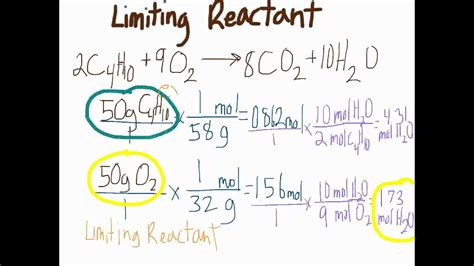 Limiting Reactant
2C₄H₁₀+9O₂→8CO₂+10H₂O
50gC₄H₁₀/1 × 1 mol/58 g = 0.862mol/1 × 10 mol H₂O/2 molC₄H₁₀ = 4.31 mol H₂O
50g O₂/1 × 1 mol/32 g = 1.56mol/1 × 10 mol H₂O/9 mol O₂ = 1.73 mol H₂O
Limiting Reactant